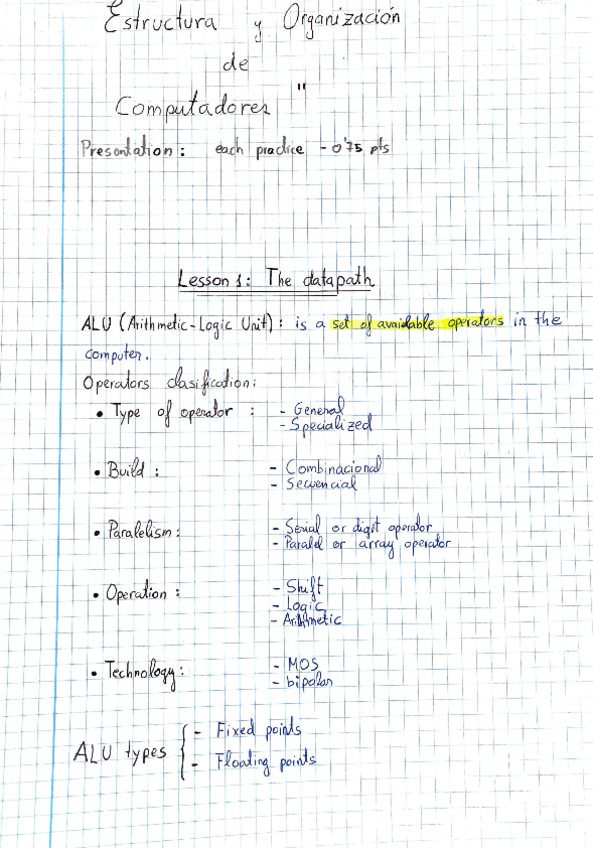 Estructura y Organización
de
Computadores "
Presentation: each practice - 0'75 pts
Lesson 1: The datapath
ALU (Arithmetic-Logic Unit): is a set of avaidable operators in the
computer.
Operators clasification:
• Type of operator : - General
- Specialized
• Build : - Combinacional
- Secuencial
• Paralelism: - Serial or digit operator
- Paralel or array operator
• Operation : - Shift
- Logic
- Arithmetic
• Technology: - MOS
- bipolar
ALU types { - Fixed points
- Floating points